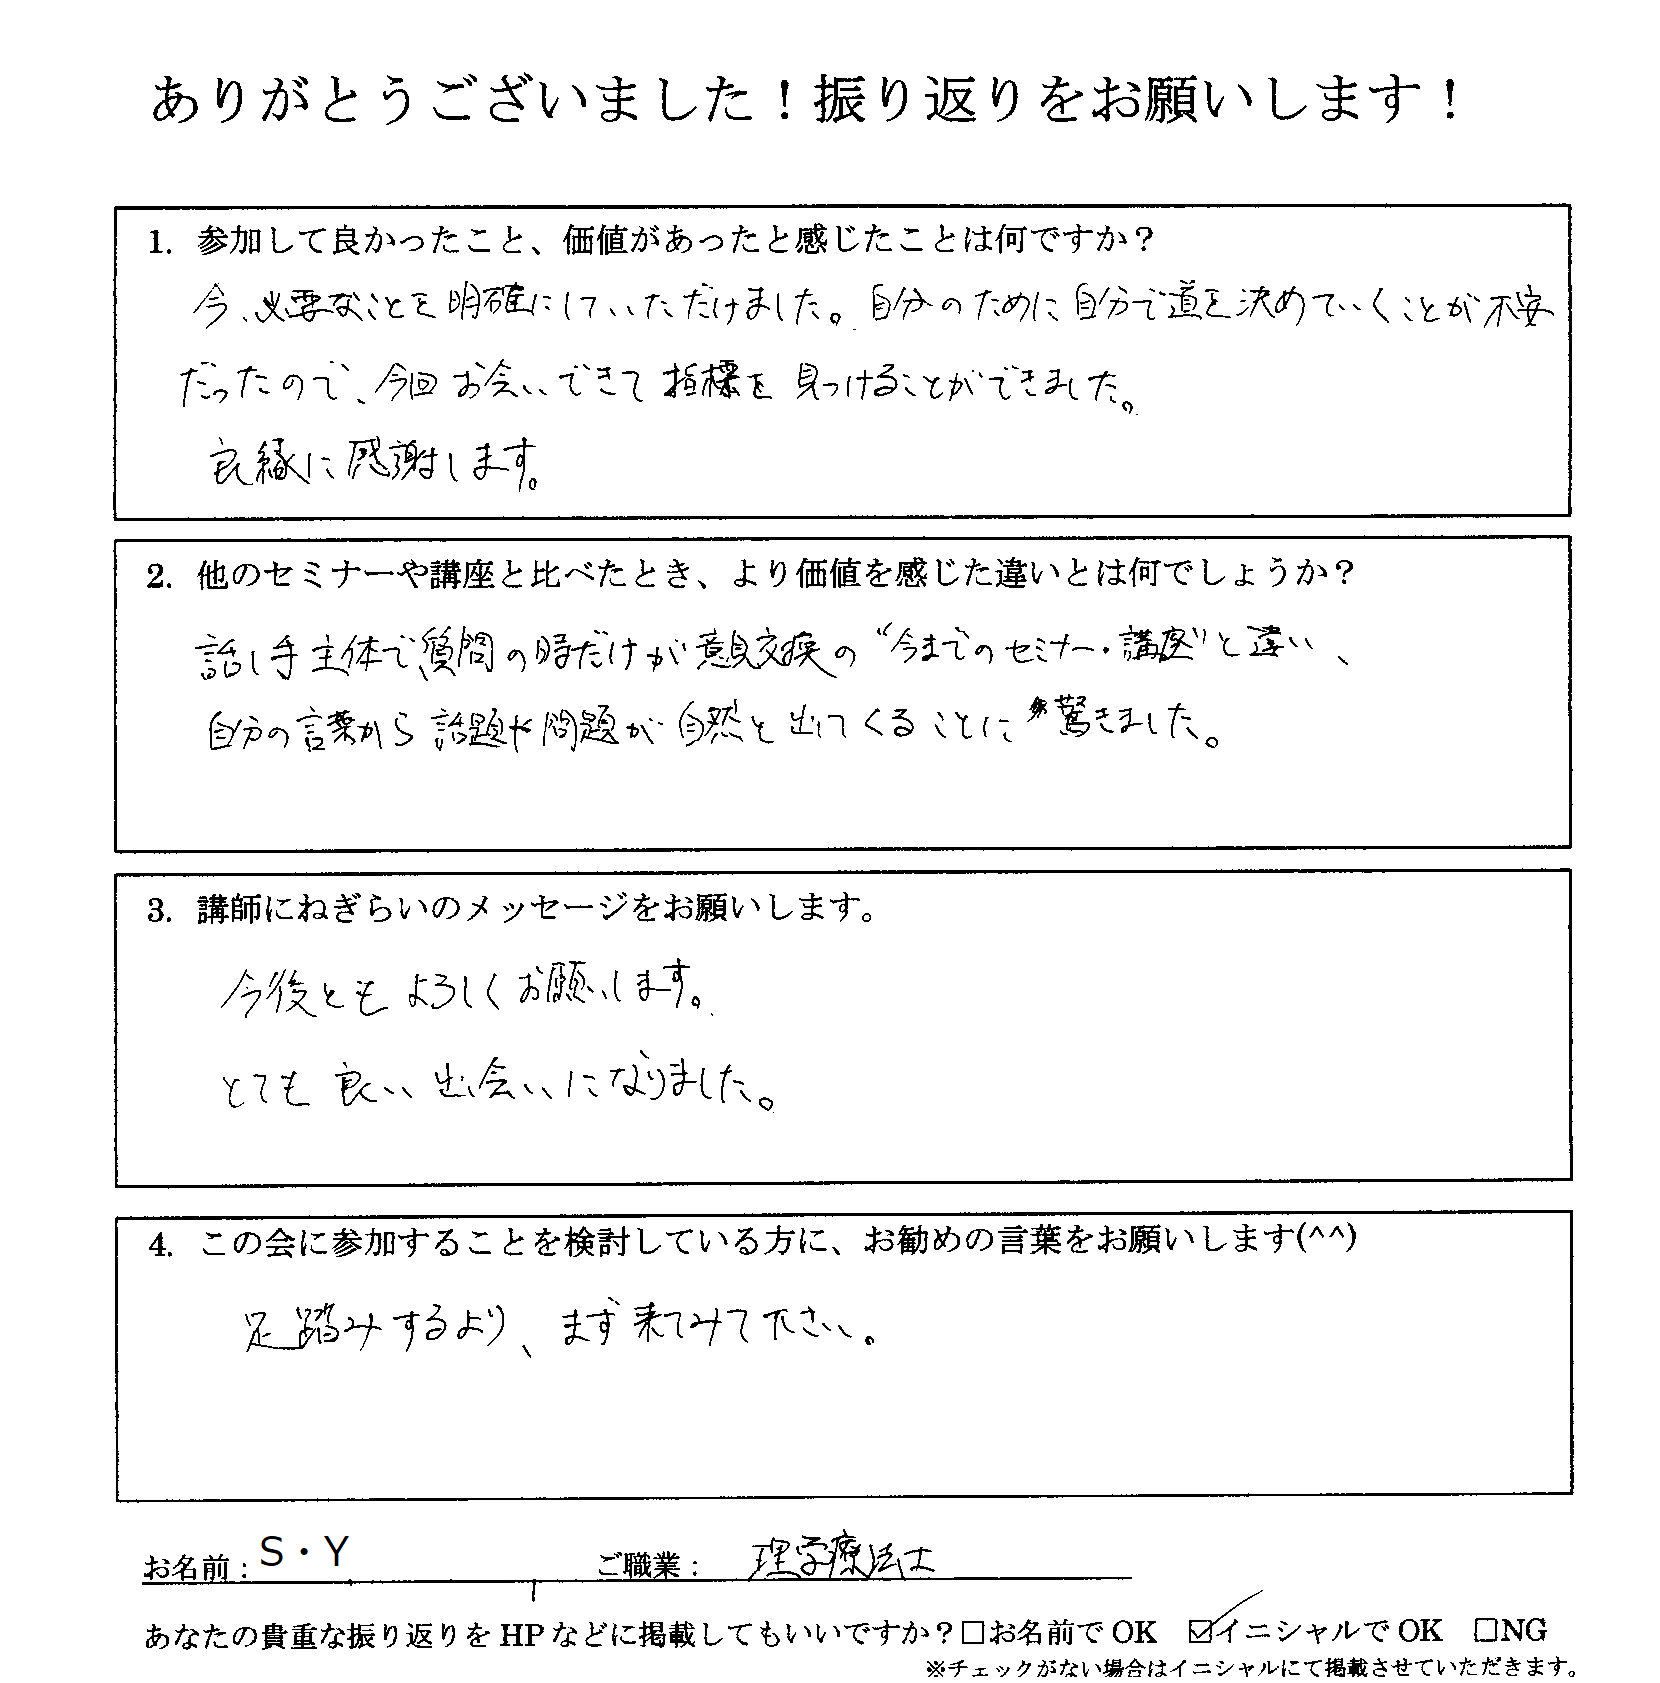 ありがとうございました！振り返りをお願いします！
1. 参加して良かったこと、価値があったと感じたことは何ですか？
今、必要なことを明確にしていただけました。自分のために自分で道を決めていくことが不安
だったので、今回お会いできて指標を見つけることができました。
良縁に感謝します。
2. 他のセミナーや講座と比べたとき、より価値を感じた違いとは何でしょうか？
話し手主体で、質問の時だけが意見交換の“今までのセミナー・講座”と違い、
自分の言葉から話題や問題が自然と出てくることに驚きました。
3. 講師にねぎらいのメッセージをお願いします。
今後ともよろしくお願いします。
とても良い出会いになりました。
4. この会に参加することを検討している方に、お勧めの言葉をお願いします(^^)
足踏みするより、まず来てみて下さい。
お名前：S・Y ご職業：理学療法士
あなたの貴重な振り返りをHPなどに掲載してもいいですか？□お名前でOK ☑イニシャルでOK □NG
※チェックがない場合はイニシャルにて掲載させていただきます。